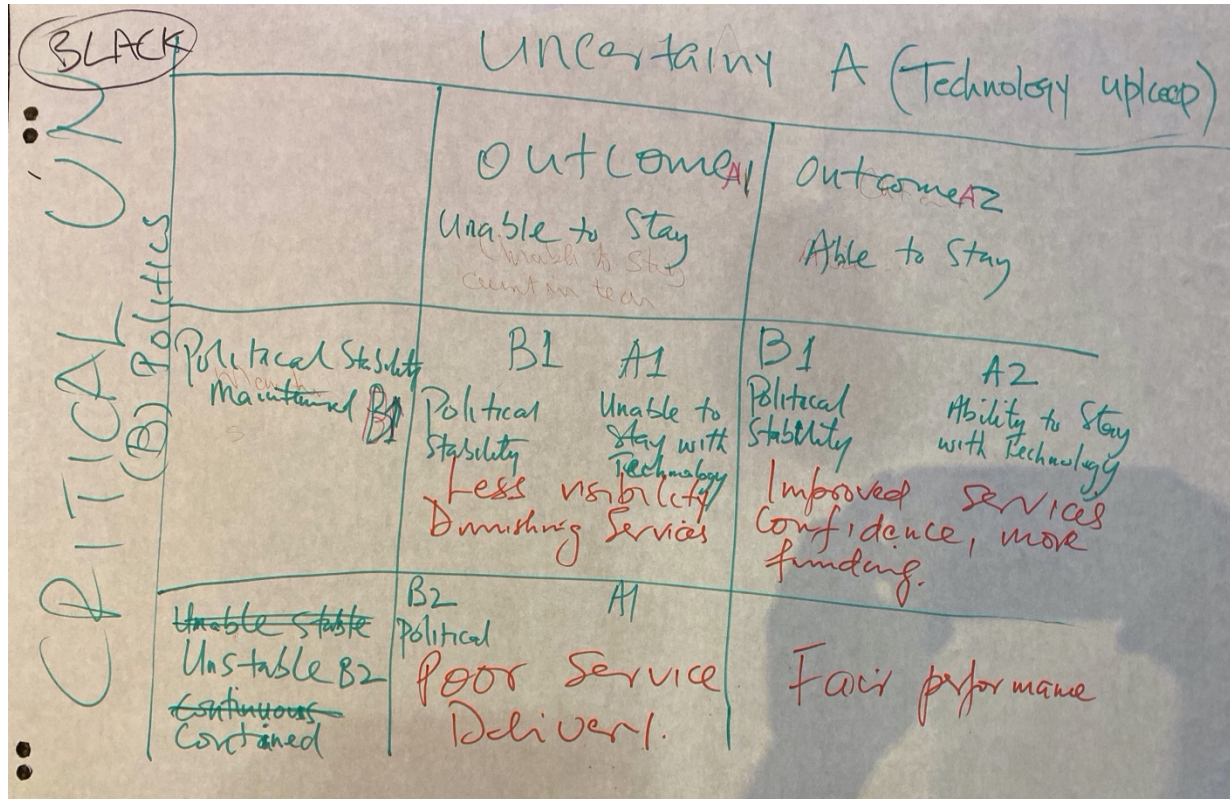 BLACK
Uncertainy A (Technology upkeep)
CRITICAL UN
(B) Politics
Outcome A1
Unable to Stay
Unable to Stay
Outcome A2
Able to Stay
Political Stability
Maintained B1
B1 A1
Political Stability
Unable to Stay with Technology
Less visibility
Diminishing Services
B1 A2
Political Stability
Ability to Stay with Technology
Improved Services
Confidence, more
funding.
Unable Stable
Unstable B2
Continuous
Contained
B2 A1
Political
Poor Service
Delivery.
Fair performance